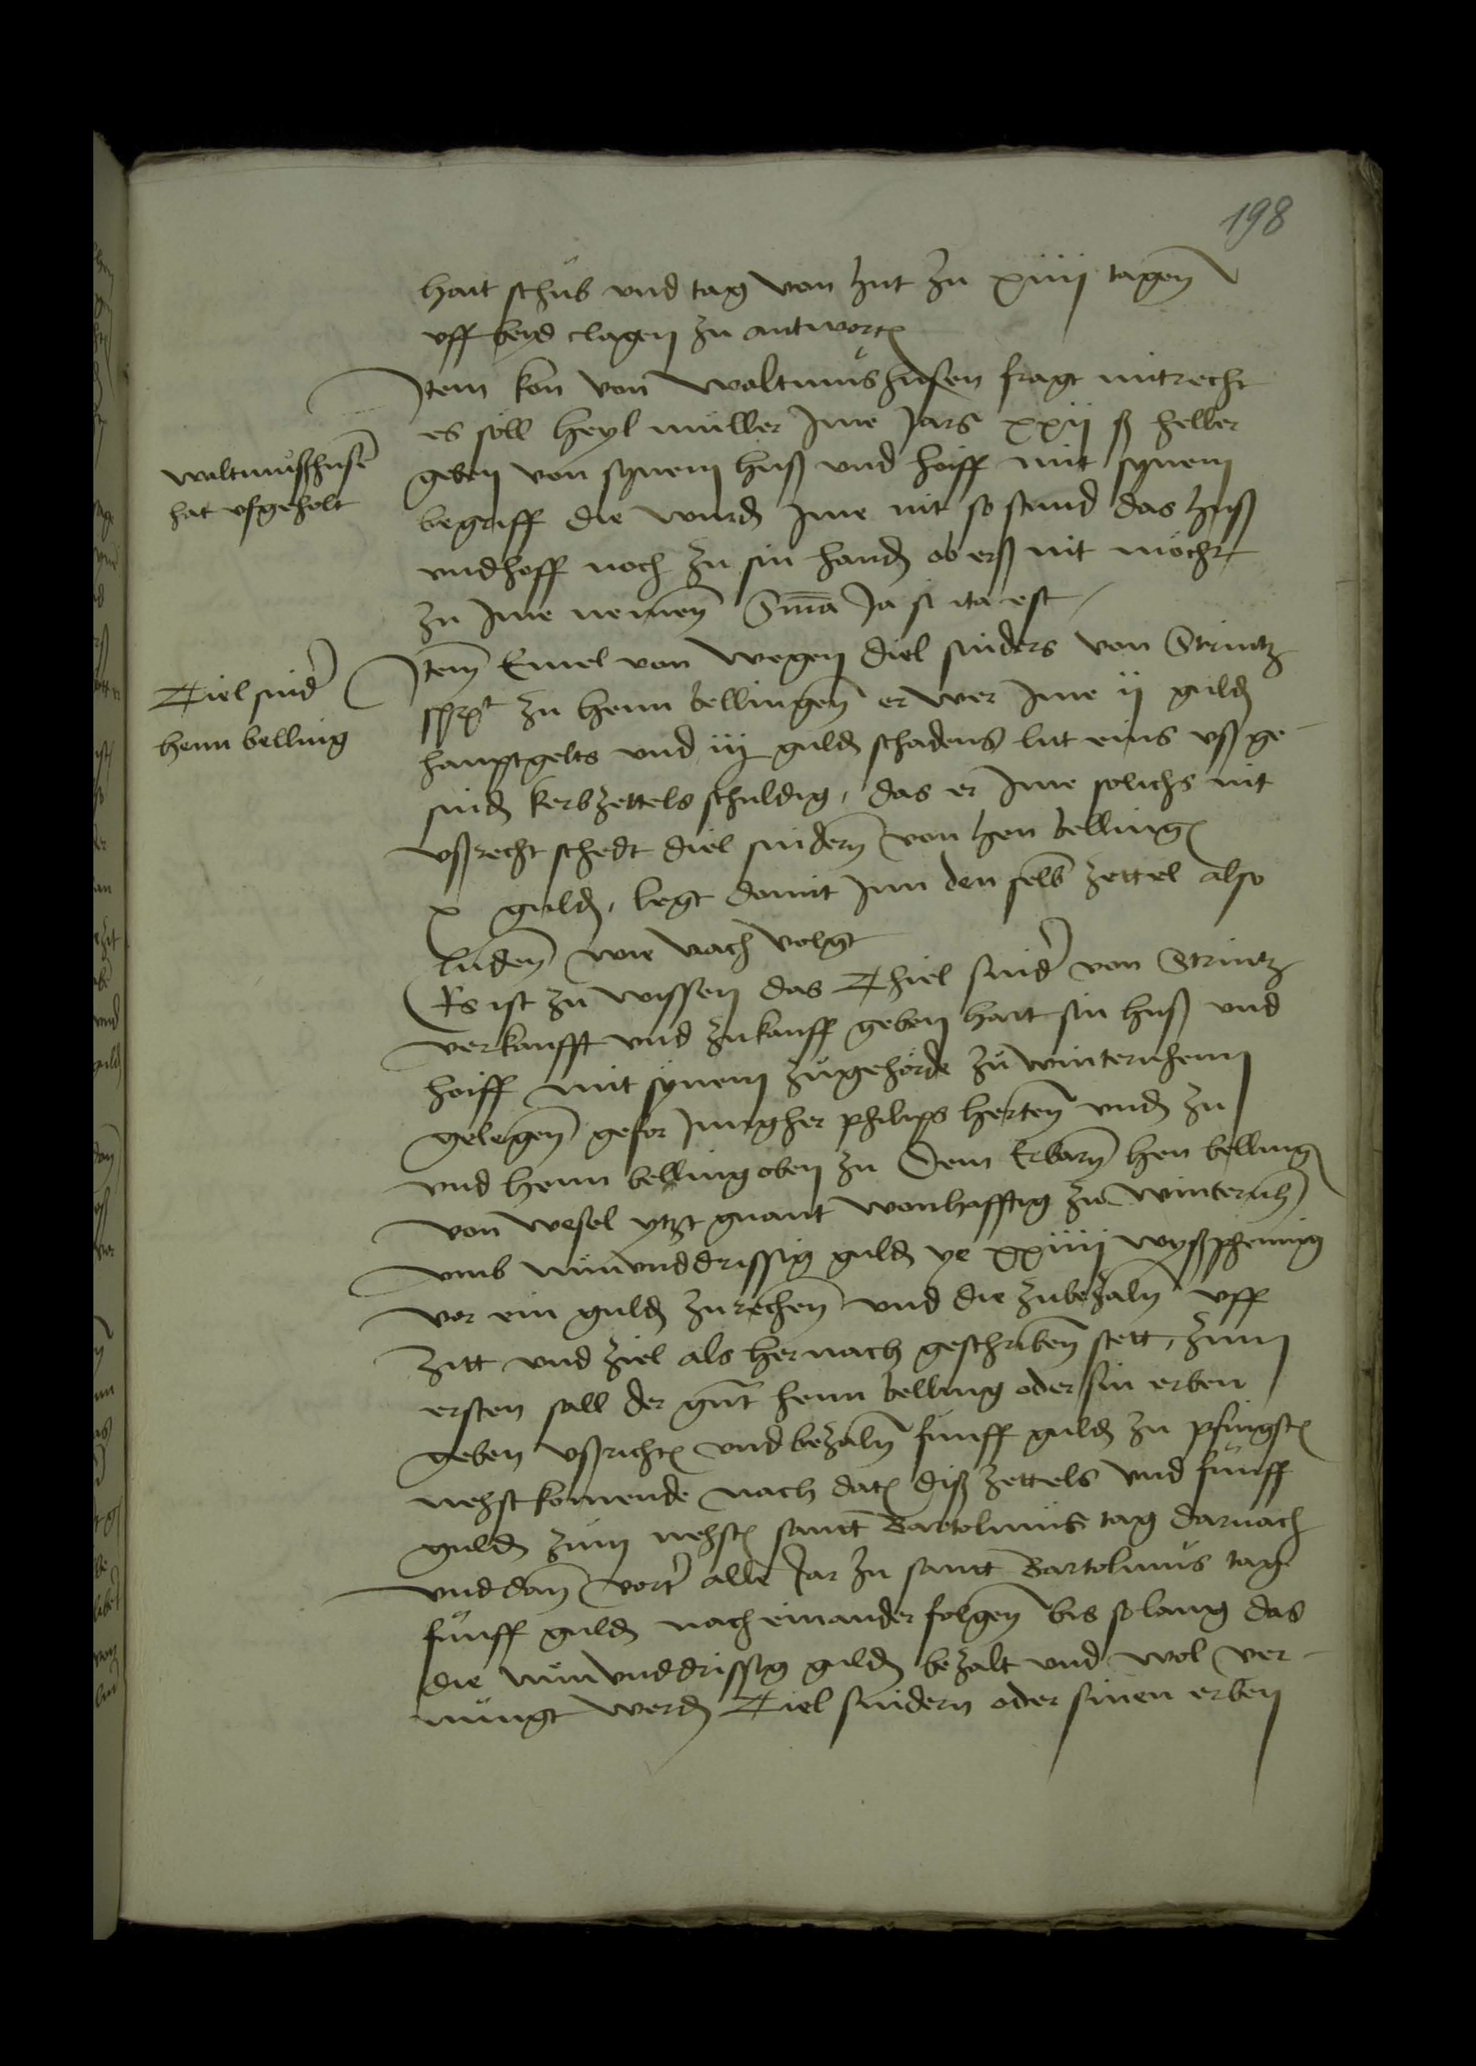 198
hait schub und tag von hut zu xiiij tagen
uff beyd clagen zu antwort
Item kon von Waltmußhusen fragt mit recht
es soll Heyl müller Ime Jars xxij ß heller
geben von synem huß und hoiff mit synem
begriff die wurd Ime nit so stund das huß
und hoff noch zu sin hand ob erß nit möcht
zu Ime nemen Sma Ja si ita est
Waltmußhusen
hat ufgeholt
Item Emel von wegen Diel sniders von Strintz
spricht zu Henn bellingen er wer Ime ij guld
hauptgelts und iij guld schadens lut eins ußge-
snid kerbzettels schuldig, das er Ime solichs nit
ußrecht schedt Diel snidern von hen belling
x guld, legt damit Inn den selb zettel also
luden wie nach volgt
Diel snider
henn belling
Es ist zu wissen das Thiel snider von Strintz
verkaufft und zu kauff geben hait sin huß und
hoiff mit synem zugehörde zu winternheim
gelegen gefor Jungher philips herten unden zu
und henn belling oben zu Dem Erbarn hen belling
von Wesel ytzt gnant wonhafftig zu winternh
umb nünunddrissig guld ye xxiiij wyßpfennig
vor ein guld zu rechen und die zubezaln uff
zitt und ziel als hernach geschriben stett, zum
ersten sall der gnt henn belling oder sin erben
geben ußricht und bezaln fünff guld zu pfingst
nehst komende nach dat diß zettels und fünff
guld zum nehst sant Bartolmus tag darnach
und dan vort alle Jar zu sant Bartolmus tag
fünff guld nach einander folgen bis so lang das
die nünunddrissig guld bezalt und wol ver-
nungt werd Diel snidern oder sinen erben